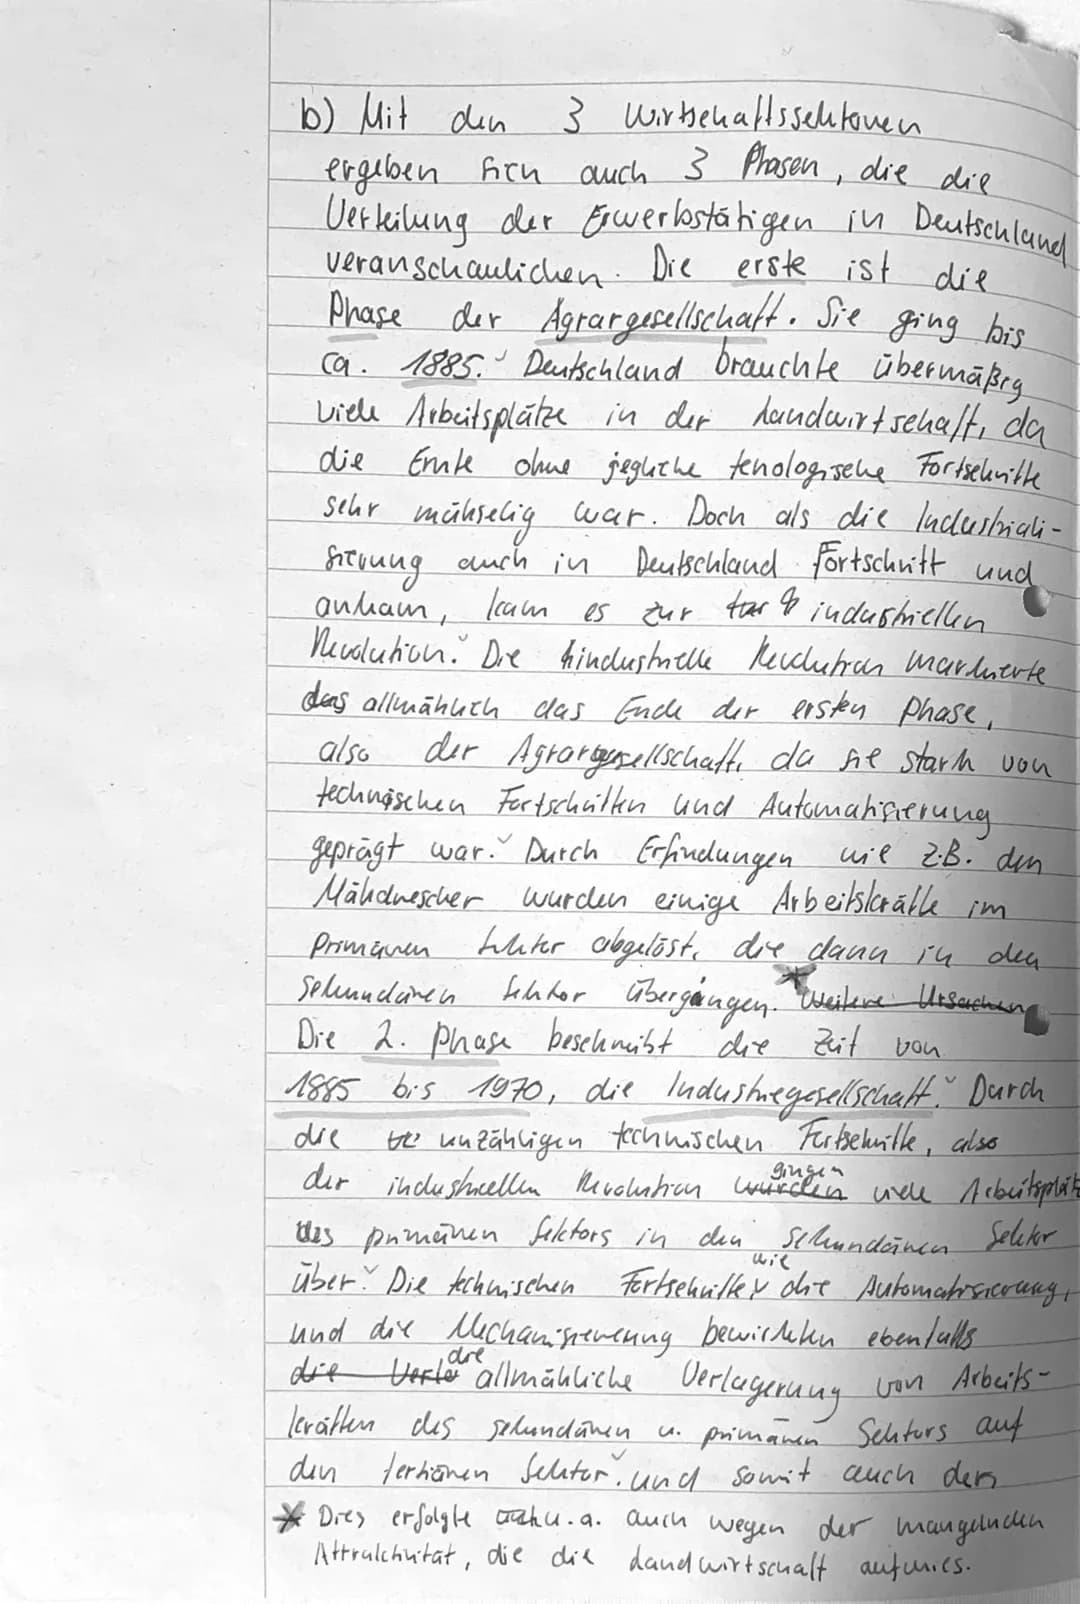 b) Mit den 3 Wirtschaftssektoren
ergeben sich auch 3 Phasen, die die
Verteilung der Erwerbstätigen in Deutschland
veranschaulichen. Die erste ist die
Phase der Agrargesellschaft. Sie ging bis
ca. 1885. Deutschland brauchte übermäßig
viele Arbeitsplätze in der Landwirtschaft, da
die Ernte ohne jegliche tenologische Fortschritte
sehr mühselig war. Doch als die Industriali-
sierung auch in Deutschland Fortschritt und
ankam, kam es zur industriellen
Revolution. Die industrielle Revolution markierte
das allmählich das Ende der ersten Phase,
also der Agrargesellschaft, da sie stark von
technischen Fortschritten und Automatisierung
geprägt war. Durch Erfindungen wie z.B. den
Mähdrescher wurden einige Arbeitskräfte im
primären Sektor abgelöst, die dann in den
sekundären Sektor übergingen. * Weitere Ursachen
Die 2. Phase beschreibt die Zeit von
1885 bis 1970, die Industriegesellschaft. Durch
die unzähligen technischen Fortschritte, also
der industriellen Revolution wurden gingen viele Arbeitsplät
des primären Sektors in den sekundären Sektor
über. Die technischen Fortschritte, wie die Automatisierung,
und die Mechanisierung bewirkten ebenfalls
die Verla die allmähliche Verlagerung von Arbeits-
kräften des sekundären u. primären Sektors auf
den tertiären Sektor. und somit auch den
* Dies erfolgte u.a. auch wegen der mangelnden
Attraktivität, die die Landwirtschaft aufwies.